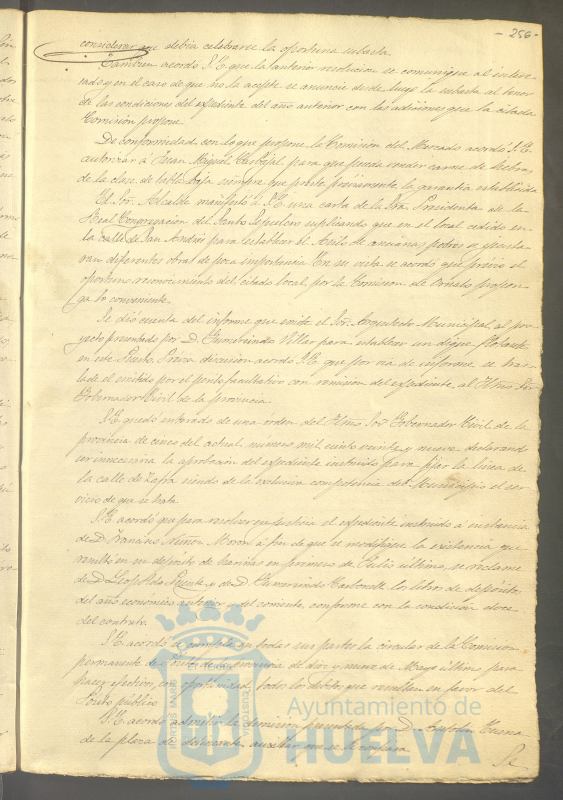 - 256 -
considerar que debia celebrarse la oportuna subasta.
Tambien acordó S.E. que la anterior resolucion se comunique al intere-
sado y en el caso de que no la acepte se anuncie desde luego la subasta al tenor
de las condiciones del expediente del año anterior con las adiciones que la citada
Comision propone.
De conformidad con lo que propone la Comision del Mercado acordó S.E.
autorizar á Juan Miguel Carbajal para que pueda vender carne de hebra,
de la clase de tabla baja siempre que preste préviamente la garantia establecida
El Sor. Alcalde manifestó á S.E. una carta de la Sra. Presidenta de la
Real Congregacion del Santo Sepulcro suplicando que en el local cedido en
la calle de San Andrés para establecer el Asilo de ancianas pobres se practica-
ran diferentes obras de poca importancia. En su vista se acordó que prévio el
oportuno reconocimiento del citado local por la Comision de Ornato propon-
ga lo conveniente.
Se dió cuenta del informe que emite el Sor. Arquitecto Municipal al pro-
yecto presentado por D. Gumersindo Viller para establecer un dique flotante
en este Puerto. Prévia discusion acordó S.E. que por via de informe se tras-
lade el emitido por el perito facultativo con remision del expediente al Iltmo. Sor.
Gobernador Civil de la provincia.
S.E. quedó enterado de una órden del Iltmo. Sor. Gobernador Civil de la
provincia de cinco del actual, número mil ciento veinte y nueve declarando
ser innecesaria la aprobacion del expediente instruido para fijar la linea de
la calle de Zafra siendo de la exclusiva competencia del Municipio el ser-
vicio de que se trata.
S.E. acordó que para resolver en justicia el expediente instruido á instancia
de D. Francisco Nuñez Moron á fin de que se modifique la existencia que
resultó en su depósito de harinas en primero de Julio último, se reclame
de D. Leopoldo Puente y de D. Gumersindo Carbonell los libros de depósitos
del año económico anterior y del corriente, conforme con la condicion doce
del contrato.
S.E. acordó se cumpla en todas sus partes la circular de la Comision
permanente de Pósitos de la provincia de diez y nueve de Mayo último para
hacer efectivos, con oportunidad, todos los débitos que resultan en favor del
Pósito público.
S.E. acordó admitir la dimision presentada por D. Antolin
de la plaza de delineante auxiliar
Se
Ayuntamiento de
HUELVA